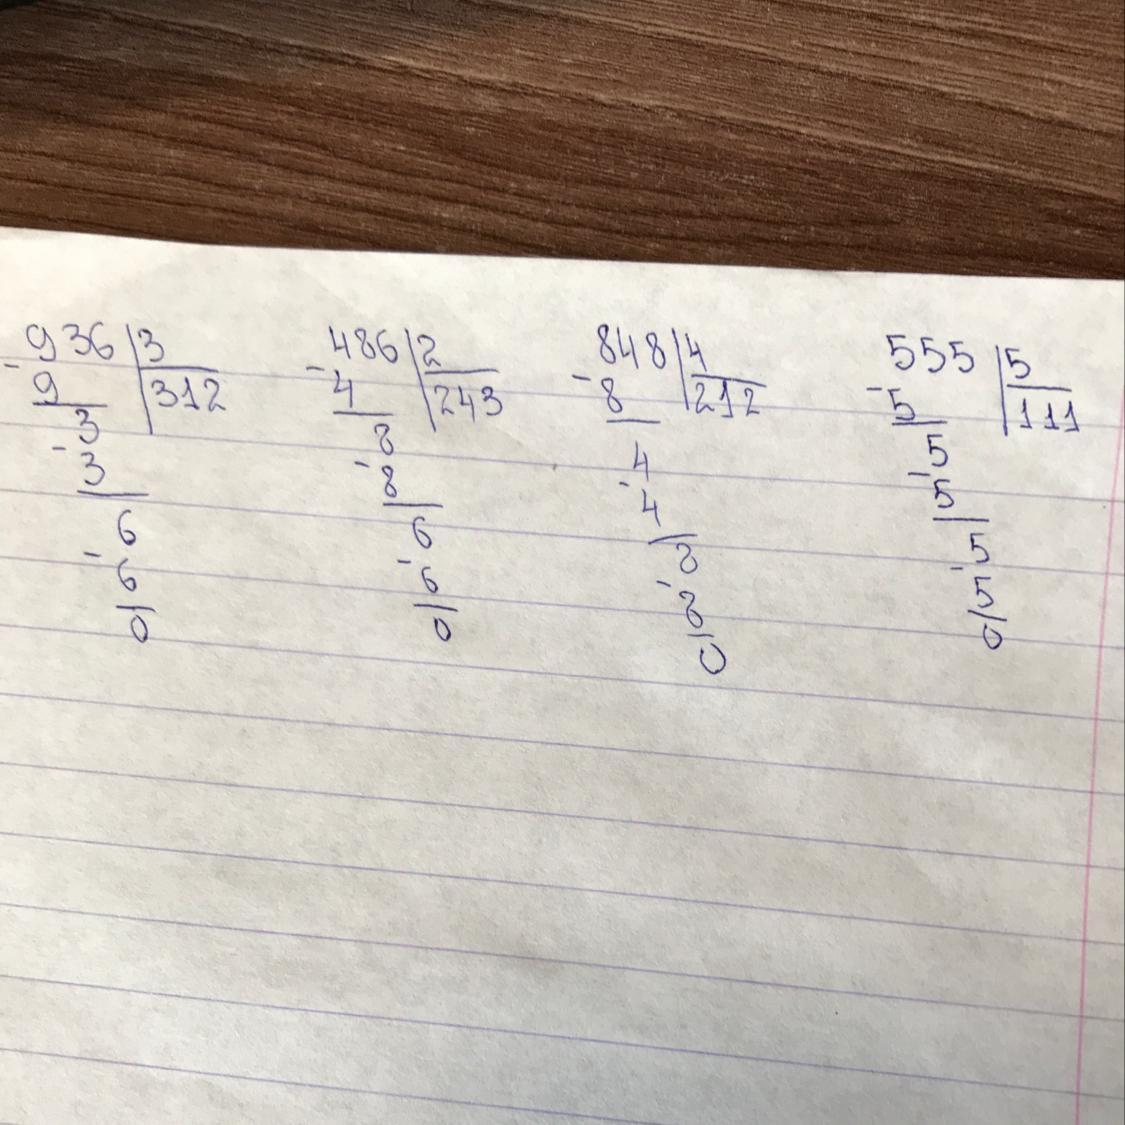 936 3
- 9 312
3
- 3
6
- 6
0
486 2
- 4 243
8
- 8
6
- 6
0
848 4
- 8 212
4
- 4
8
- 8
0
555 5
- 5 111
5
- 5
5
- 5
0